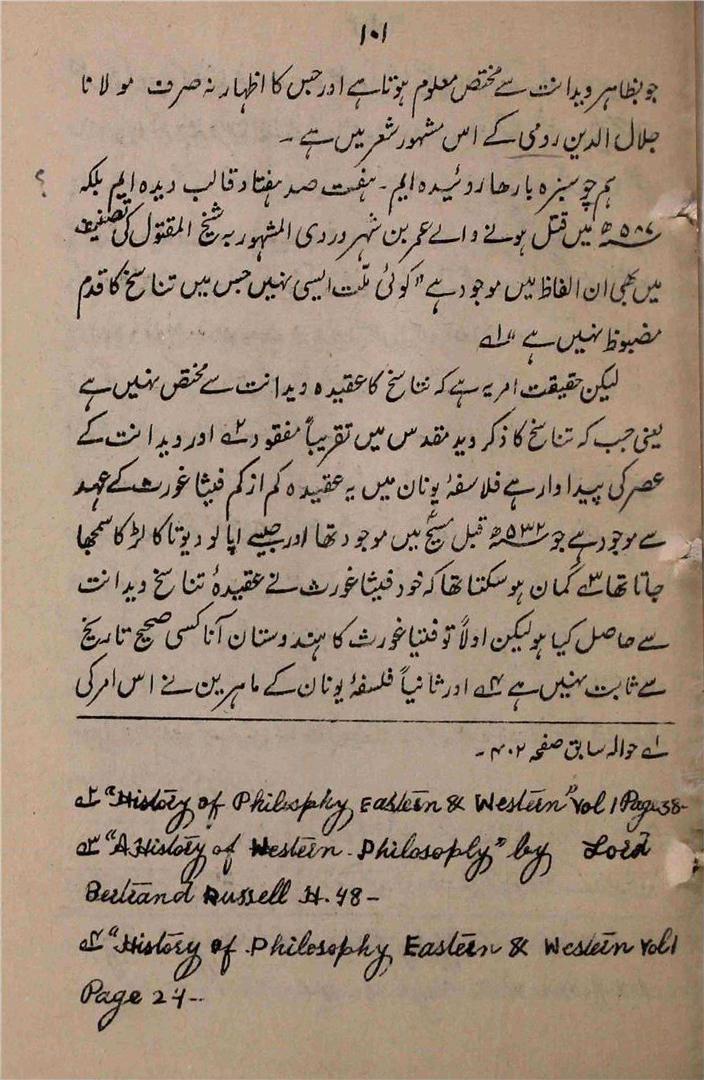 ۱۰۱
جو بظاہر ویدانت سے مختص معلوم ہوتا ہے اور جس کا اظہار نہ صرف مولانا
جلال الدین رومی کے اس مشہور شعر میں ہے ۔
ہم چو سبزہ بارھا روئیدہ ایم ۔ ہفت صد ہفتاد قالب دیدہ ایم بلکہ ؟
۵۸۷ھ میں قتل ہونے والے عمر بن شہروردی المشہور بہ شیخ المقتول کی تصنیف
میں بھی ان الفاظ میں موجود ہے "کوئی ملّت ایسی نہیں جس میں تناسخ کا قدم
مضبوظ نہیں ہے" ۱ے
لیکن حقیقت امر یہ ہے کہ تناسخ کا عقیدہ ویدانت سے مختص نہیں ہے
یعنی جب کہ تناسخ کا ذکر وید مقدس میں تقریباً مفقود ۲ے اور ویدانت کے
عصر کی پیداوار ہے فلاسفۂ یونان میں یہ عقیدہ کم از کم فیثا غورث کے عہد
سے موجود ہے جو ۵۳۲ھ قبل مسیحؑ میں موجود تھا اور جسے اپالو دیوتا کا لڑکا سمجھا
جاتا تھا ۳ے گمان ہو سکتا تھا کہ خود فیثا غورث نے عقیدۂ تناسخ ویدانت
سے حاصل کیا ہو لیکن اولاً تو فیثا غورث کا ہندوستان آنا کسی صحیح تاریخ
سے ثابت نہیں ہے ۴ے اور ثانیاً فلسفۂ یونان کے ماہرین نے اس امر کی
۱ے حوالہ سابق صفحہ ۴۰۲ ۔
۲ے "History of Philosphy Eastern & Western" Vol 1 Page 38-
۳ے "A History of Western Philosoply" by Lord
Bertrand Russell H. 48 -
۴ے "History of Philosophy Eastern & Western Vol 1
Page 24--